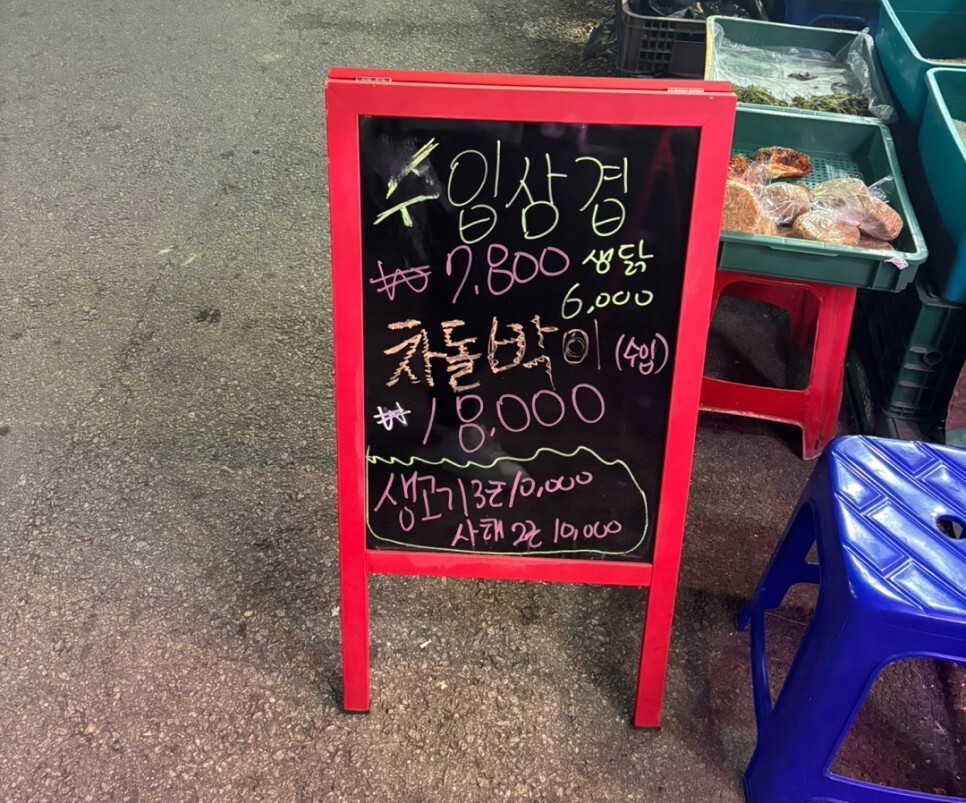 수입상겹
₩7,800 생닭
6,000
차돌박이 (수입)
₩18,000
생고기3근10,000
사태 2근 10,000